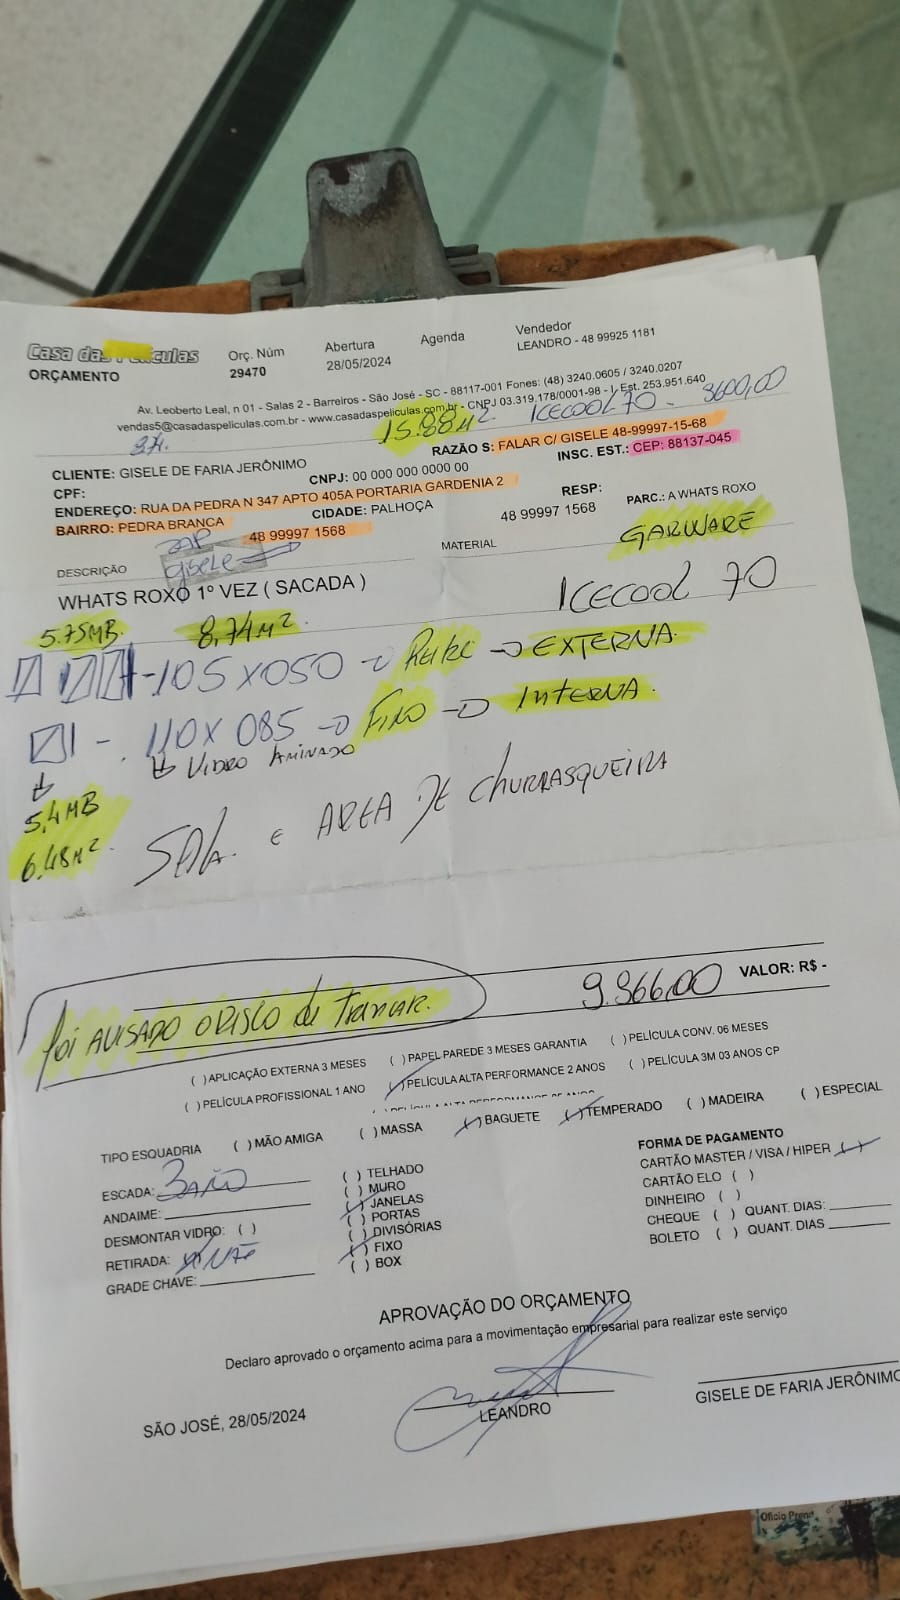 Casa das culas
ORÇAMENTO
Orç. Núm
29470
Abertura
28/05/2024
Agenda
Vendedor
LEANDRO - 48 99925 1181
Av. Leoberto Leal, n 01 - Salas 2 - Barreiros - São José - SC - 88117-001 Fones: (48) 3240.0605 / 3240.0207
vendas5@casadaspeliculas.com.br - www.casadaspeliculas.com.br - CNPJ 03.319.178/0001-98 - I. Est. 253.951.640
15.88M² ICECOOL 70 - 3600,00
CLIENTE: GISELE DE FARIA JERÔNIMO
RAZÃO S: FALAR C/ GISELE 48-99997-15-68
CPF:
CNPJ: 00 000 000 0000 00
INSC. EST.: CEP: 88137-045
ENDEREÇO: RUA DA PEDRA N 347 APTO 405A PORTARIA GARDENIA 2
BAIRRO: PEDRA BRANCA
CIDADE: PALHOÇA
RESP:
PARC.: A WHATS ROXO
48 99997 1568
48 99997 1568
ZAP
gisele
DESCRIÇÃO
MATERIAL
GARWARE
WHATS ROXO 1º VEZ ( SACADA )
ICECOOL 70
5.75MB. 8,74M²
-105 X 050 → → EXTERNA
- 110 X 085 → FIXO → INTERNA.
VIDRO AMINADO
5,4MB
6,48M²
SALA e AREA DE CHURRASQUEIRA
foi AVISADO O RISCO de Trancar.
9.366,00
VALOR: R$ -
( ) APLICAÇÃO EXTERNA 3 MESES
( ) PAPEL PAREDE 3 MESES GARANTIA
( ) PELÍCULA CONV. 06 MESES
( ) PELÍCULA PROFISSIONAL 1 ANO
( ) PELÍCULA ALTA PERFORMANCE 2 ANOS
( ) PELÍCULA 3M 03 ANOS CP
TIPO ESQUADRIA
( ) MÃO AMIGA
( ) MASSA
( ) BAGUETE
( ) TEMPERADO
( ) MADEIRA
( ) ESPECIAL
ESCADA:
ANDAIME:
DESMONTAR VIDRO: ( )
RETIRADA: NÃO
GRADE CHAVE:
( ) TELHADO
( ) MURO
( ) JANELAS
( ) PORTAS
( ) DIVISÓRIAS
( ) FIXO
( ) BOX
FORMA DE PAGAMENTO
CARTÃO MASTER / VISA / HIPER ( )
CARTÃO ELO ( )
DINHEIRO ( )
CHEQUE ( ) QUANT. DIAS:
BOLETO ( ) QUANT. DIAS
APROVAÇÃO DO ORÇAMENTO
Declaro aprovado o orçamento acima para a movimentação empresarial para realizar este serviço
SÃO JOSÉ, 28/05/2024
LEANDRO
GISELE DE FARIA JERÔNIMO